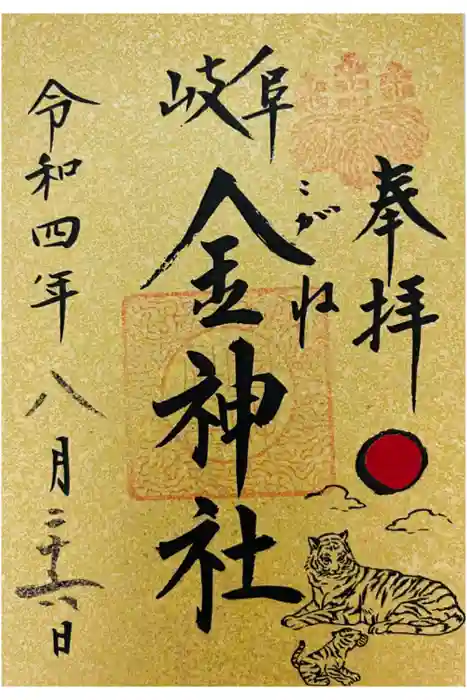 奉拝
岐阜
こがね
金神社
令和四年八月二十六日